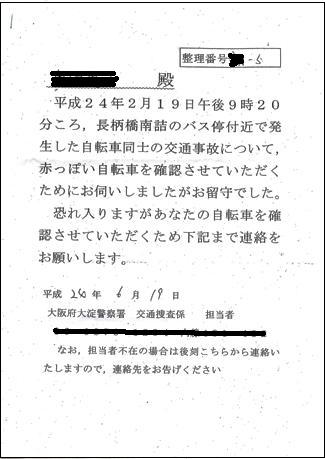 整理番号 -5
殿
平成24年2月19日午後9時20
分ころ，長柄橋南詰のバス停付近で発
生した自転車同士の交通事故について，
赤っぽい自転車を確認させていただく
ためにお伺いしましたがお留守でした。
恐れ入りますがあなたの自転車を確
認させていただくため下記まで連絡を
お願いします。
平成 24 年 6 月 19 日
大阪府大淀警察署 交通捜査係 担当者
なお，担当者不在の場合は後刻こちらから連絡い
たしますので，連絡先をお告げください